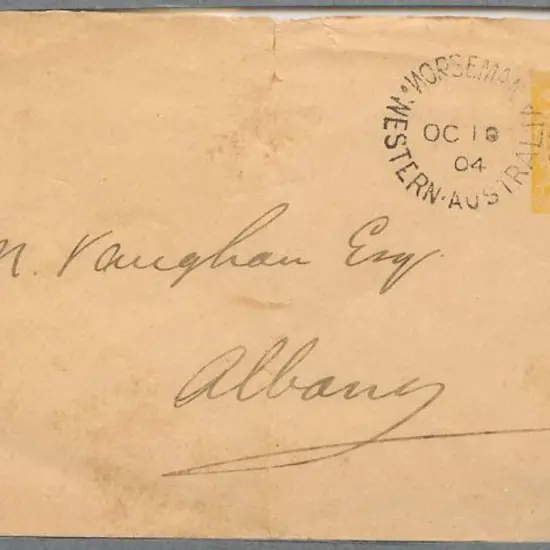 NORSEMAN
OC 18
04
WESTERN·AUSTRALIA
N. Vaughan Esq.
Albany